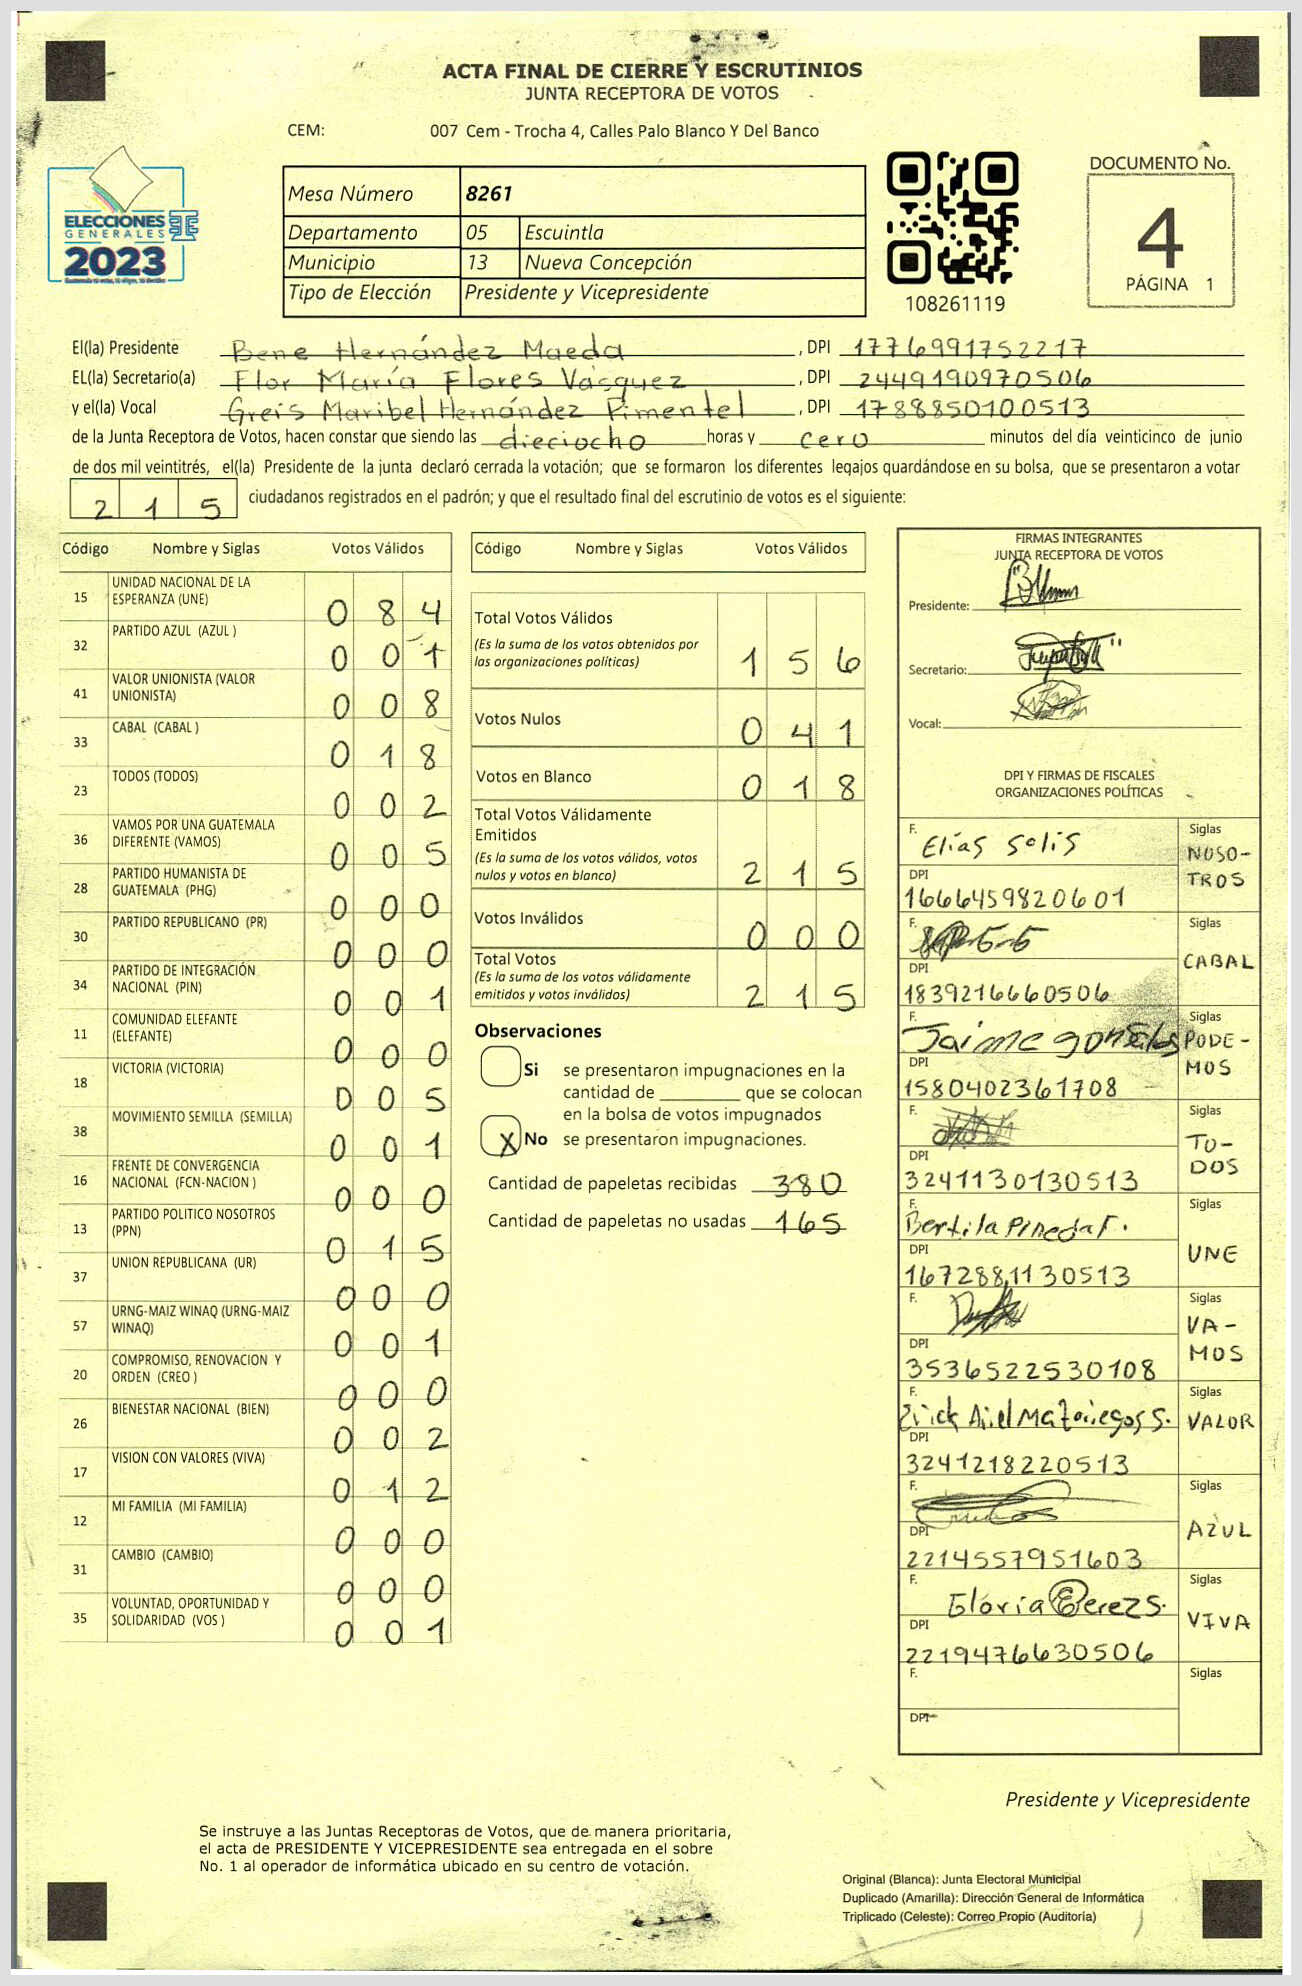 ACTA FINAL DE CIERRE Y ESCRUTINIOS
JUNTA RECEPTORA DE VOTOS
CEM: 007 Cem - Trocha 4, Calles Palo Blanco Y Del Banco
ELECCIONES
GENERALES
2023
Mesa Número 8261
Departamento 05 Escuintla
Municipio 13 Nueva Concepción
Tipo de Elección Presidente y Vicepresidente
108261119
DOCUMENTO No.
4
PÁGINA 1
El(la) Presidente Bene Hernández Maeda, DPI 1776991752217
EL(la) Secretario(a) Flor María Flores Vásquez, DPI 2449190970506
y el(la) Vocal Greis Maribel Hernández Pimentel, DPI 1788850100513
de la Junta Receptora de Votos, hacen constar que siendo las dieciocho horas y cero minutos del día veinticinco de junio
de dos mil veintitrés, el(la) Presidente de la junta declaró cerrada la votación; que se formaron los diferentes legajos quardándose en su bolsa, que se presentaron a votar
215 ciudadanos registrados en el padrón; y que el resultado final del escrutinio de votos es el siguiente:
Código Nombre y Siglas Votos Válidos
15 UNIDAD NACIONAL DE LA ESPERANZA (UNE) 084
32 PARTIDO AZUL (AZUL ) 001
41 VALOR UNIONISTA (VALOR UNIONISTA) 008
33 CABAL (CABAL ) 018
23 TODOS (TODOS) 002
36 VAMOS POR UNA GUATEMALA DIFERENTE (VAMOS) 005
28 PARTIDO HUMANISTA DE GUATEMALA (PHG) 000
30 PARTIDO REPUBLICANO (PR) 000
34 PARTIDO DE INTEGRACIÓN NACIONAL (PIN) 001
11 COMUNIDAD ELEFANTE (ELEFANTE) 000
18 VICTORIA (VICTORIA) 005
38 MOVIMIENTO SEMILLA (SEMILLA) 001
16 FRENTE DE CONVERGENCIA NACIONAL (FCN-NACION ) 000
13 PARTIDO POLITICO NOSOTROS (PPN) 015
37 UNION REPUBLICANA (UR) 000
57 URNG-MAIZ WINAQ (URNG-MAIZ WINAQ) 001
20 COMPROMISO, RENOVACION Y ORDEN (CREO ) 000
26 BIENESTAR NACIONAL (BIEN) 002
17 VISION CON VALORES (VIVA) 012
12 MI FAMILIA (MI FAMILIA) 000
31 CAMBIO (CAMBIO) 000
35 VOLUNTAD, OPORTUNIDAD Y SOLIDARIDAD (VOS ) 001
Código Nombre y Siglas Votos Válidos
Total Votos Válidos 156
(Es la suma de los votos obtenidos por
las organizaciones políticas)
Votos Nulos 041
Votos en Blanco 018
Total Votos Válidamente
Emitidos 215
(Es la suma de los votos válidos, votos
nulos y votos en blanco)
Votos Inválidos 000
Total Votos 215
(Es la suma de los votos válidamente
emitidos y votos inválidos)
Observaciones
Si se presentaron impugnaciones en la
cantidad de ________ que se colocan
en la bolsa de votos impugnados
X No se presentaron impugnaciones.
Cantidad de papeletas recibidas 380
Cantidad de papeletas no usadas 165
FIRMAS INTEGRANTES
JUNTA RECEPTORA DE VOTOS
Presidente:
Secretario:
Vocal:
DPI Y FIRMAS DE FISCALES
ORGANIZACIONES POLÍTICAS
F. Elías Solís Siglas NOSO-TROS
DPI 1666459820601
F. Siglas CABAL
DPI 1839216660506
F. Jaime gonzalos Siglas PODE-MOS
DPI 1580402361708
F. Siglas TO-DOS
DPI 3241130130513
F. Bertila Pineda F. Siglas UNE
DPI 1672881130513
F. Siglas VA-MOS
DPI 3536522530108
F. Erick Ariel Mazariegos S. Siglas VALOR
DPI 3241218220513
F. Siglas AZUL
DPI 2214557951603
F. Gloria Perez S. Siglas VIVA
DPI 2219476630506
F. Siglas
DPI
Presidente y Vicepresidente
Se instruye a las Juntas Receptoras de Votos, que de manera prioritaria,
el acta de PRESIDENTE Y VICEPRESIDENTE sea entregada en el sobre
No. 1 al operador de informática ubicado en su centro de votación.
Original (Blanca): Junta Electoral Municipal
Duplicado (Amarilla): Dirección General de Informática
Triplicado (Celeste): Correo Propio (Auditoría)